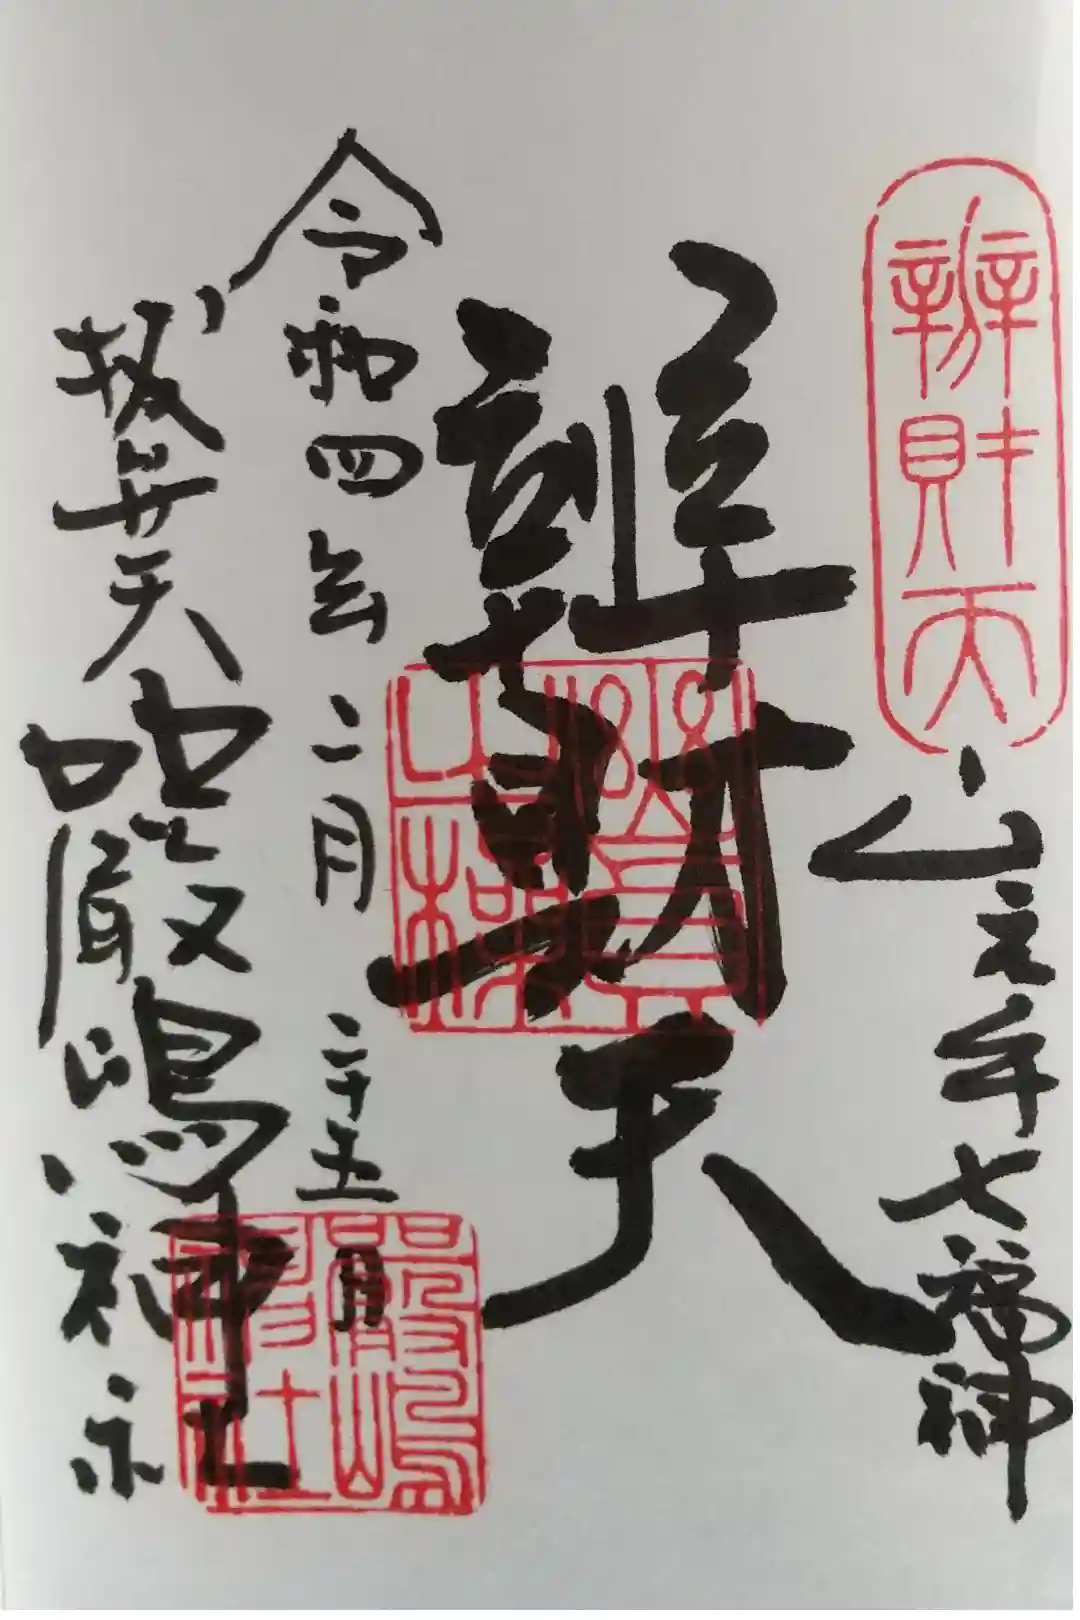 辨財天
山之手七福神
辨財天
令和四年二月二十五日
抜弁天
嚴嶋神社
嚴嶋神社